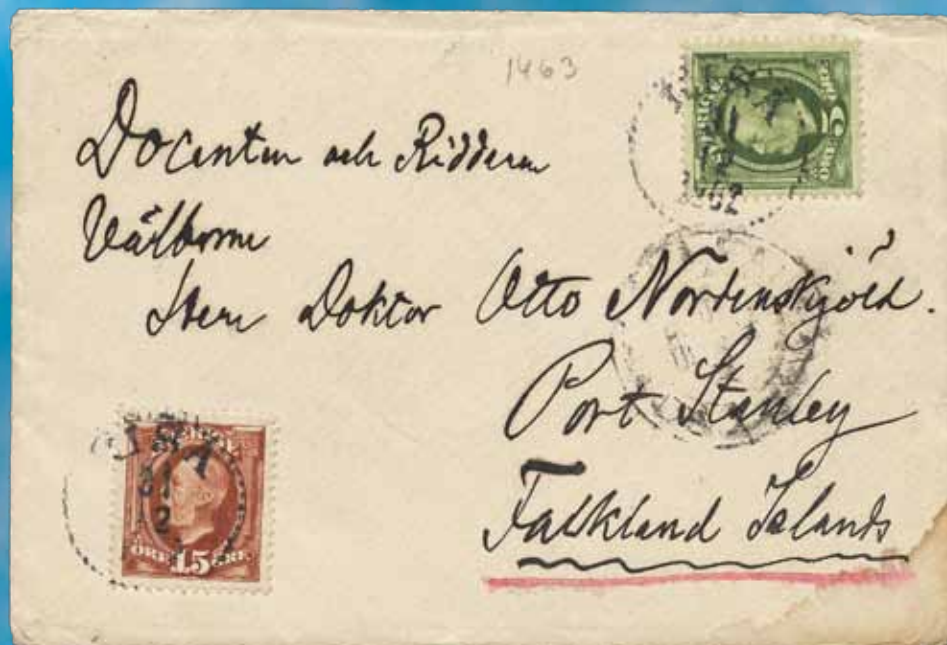 1463
Docenten och Riddaren
Välborne
Herr Doktor Otto Nordenskjöld.
Port Stanley
Falkland Islands
5
ÖRE
1902
ÖRE 15 ÖRE